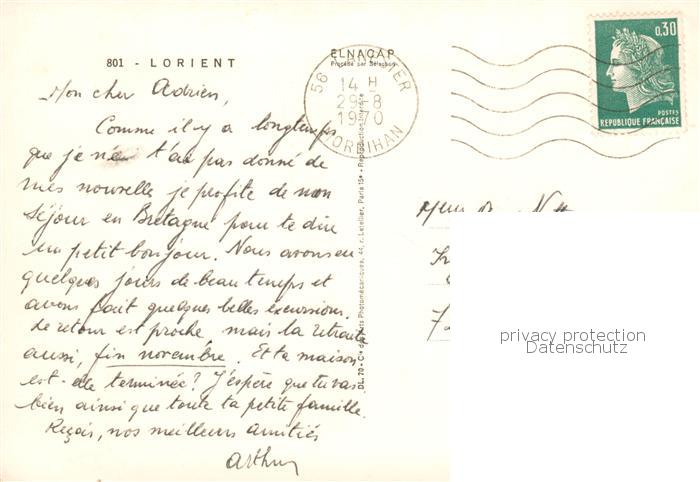 801 - LORIENT
ELNACAP
Procédé par Sélection
Mon cher Adrien,
Comme il y a longtemps
que je t'ai pas donné de
mes nouvelle je profite de mon
séjour en Bretagne pour te dire
un petit bonjour. Nous avons eu
quelques jours de beau temps et
avons fait quelques belles excursions.
Le retour est proche, mais la retraite
aussi, fin novembre. Et ta maison
est-elle terminée? J'espère que tu vas
bien ainsi que toute ta petite famille.
Reçois, nos meilleurs amitiés
Arthur
DL 70 - Cie des Arts Photomécaniques, 44, r. Letellier, Paris 15e - Reproduction interdite
56
14 H
29-8
1970
MORBIHAN
0,30
POSTES
REPUBLIQUE FRANÇAISE
privacy protection
Datenschutz